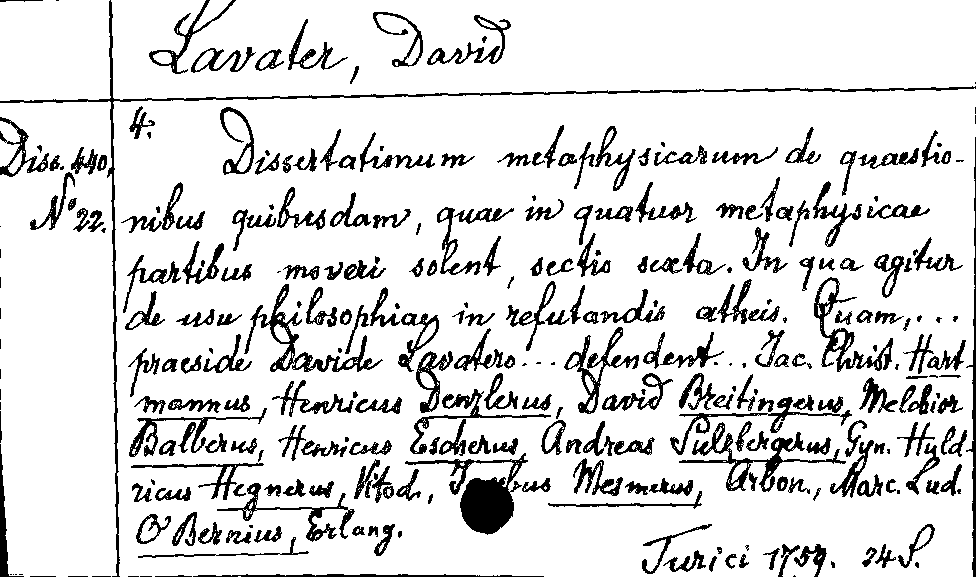 Lavater, David
Diss. 440,
No 22.
4. Dissertationum metaphysicarum de quaestio-
nibus quibusdam, quae in quatuor metaphysicae
partibus moveri solent, sectio sexta. In qua agitur
de usu philosophiae in refutandis atheis. Quam, ...
praeside Davide Lavatero ... defendent ... Jac. Christ. Hart-
mannus, Henricus Denzlerus, David Breitingerus, Melchior
Balberus, Henricus Escherus, Andreas Sulzbergerus, Gyn. Huld-
ricus Hegnerus, Vitod., Mesmerus, Arbon., Marc. Lud.
O'Bernius, Erlang.
Turici 1759. 24 S.